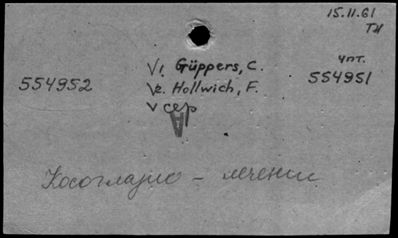 15.11.61
ТИ
V1. Güppers, C.
чпт.
554952
V2. Hollwich, F.
554951
V сер
А
Косоглазие - лечение